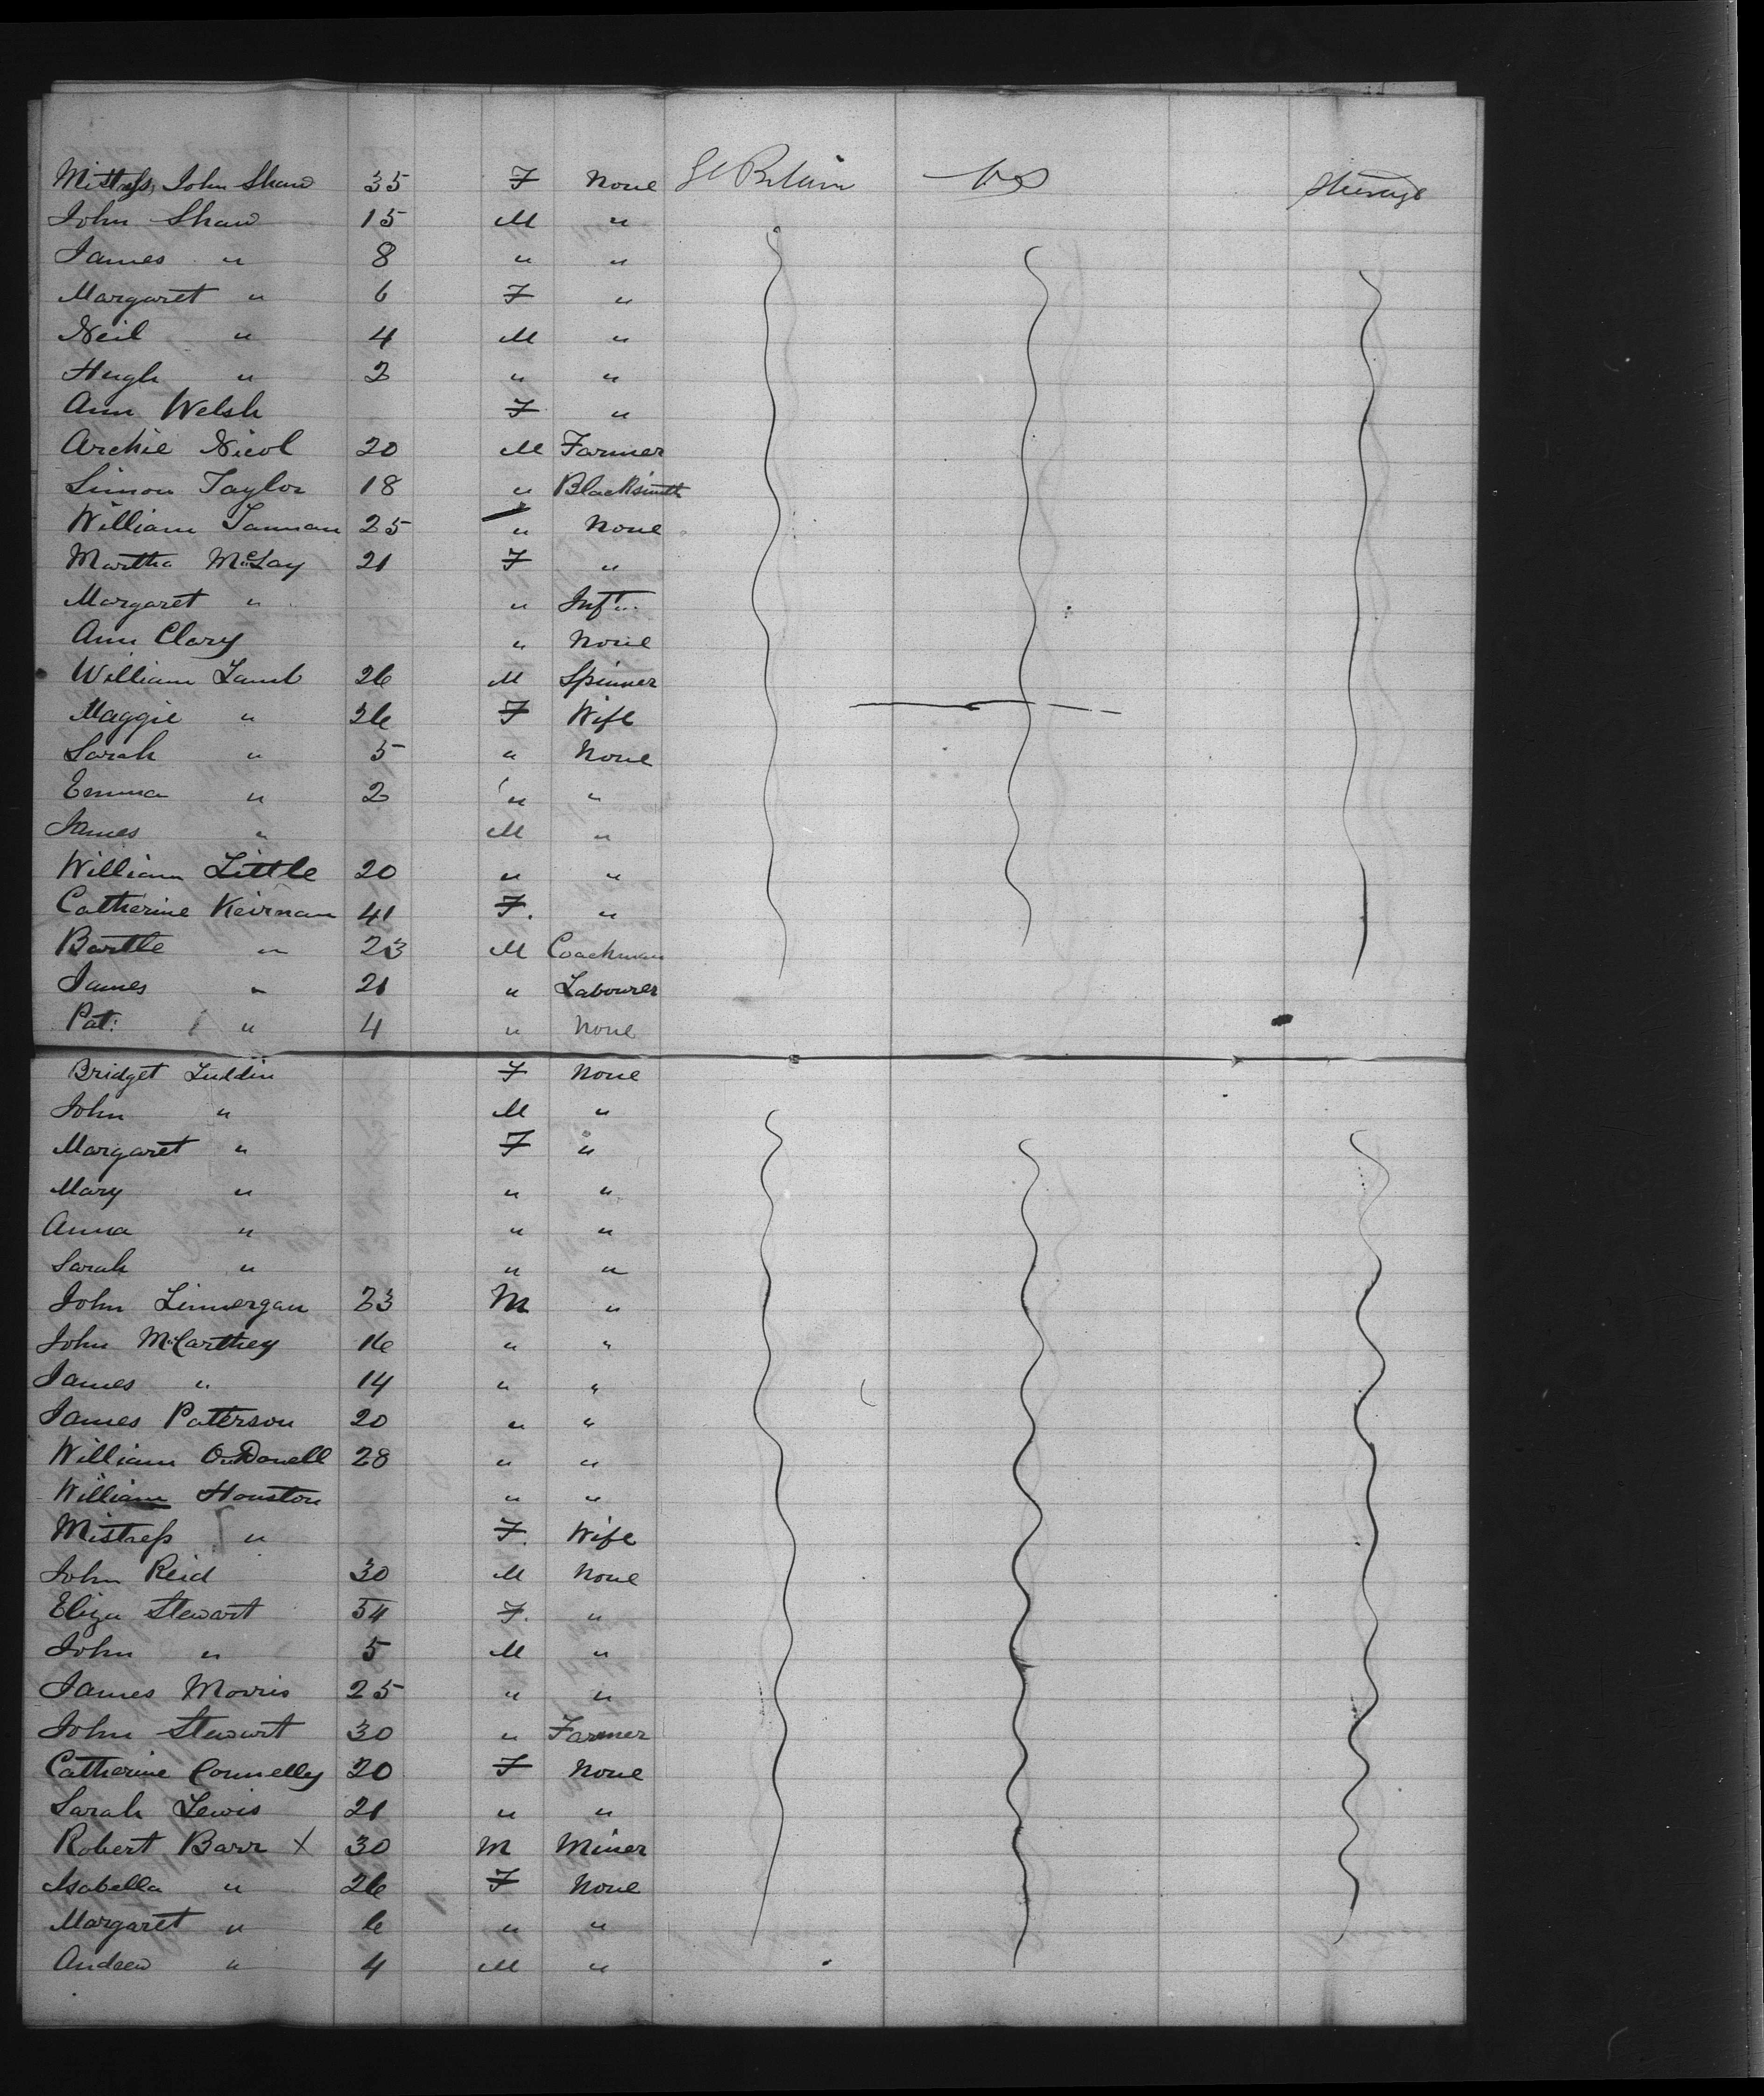 Mistress John Shaw 35 F None Gt Britain U S Steerage
John Shaw 15 M "
James " 8 " "
Margaret " 6 F "
Neil " 4 M "
Hugh " 2 " "
Ann Welsh F "
Archie Nicol 20 M Farmer
Simon Taylor 18 " Blacksmith
William 25 " None
Martha McLay 21 F "
Margaret " " Inft
Ann Clary " None
William Lamb 26 M Spinner
Maggie " 26 F Wife
Sarah " 5 " None
Emma " 2 " "
James " M "
William Little 20 " "
Catherine Keirnan 41 F. "
Bartle " 23 M Coachman
James " 21 " Labourer
Pat: " 4 " None
Bridget F None
John " M "
Margaret " F "
Mary " " "
Anna " " "
Sarah " " "
John Linnergan 23 M "
John McCarthey 16 " "
James " 14 " "
James Patterson 20 " "
William O'Donell 28 " "
William Houston " "
Mistress " F. Wife
John Reid 30 M None
Eliza Stewart 54 F. "
John " 5 M "
James Morris 25 " "
John Stewart 30 " Farmer
Catherine Connelly 20 F None
Sarah Lewis 21 " "
Robert Barr X 30 M Miner
Isabella " 26 F None
Margaret " 6 " "
Andrew " 4 M "